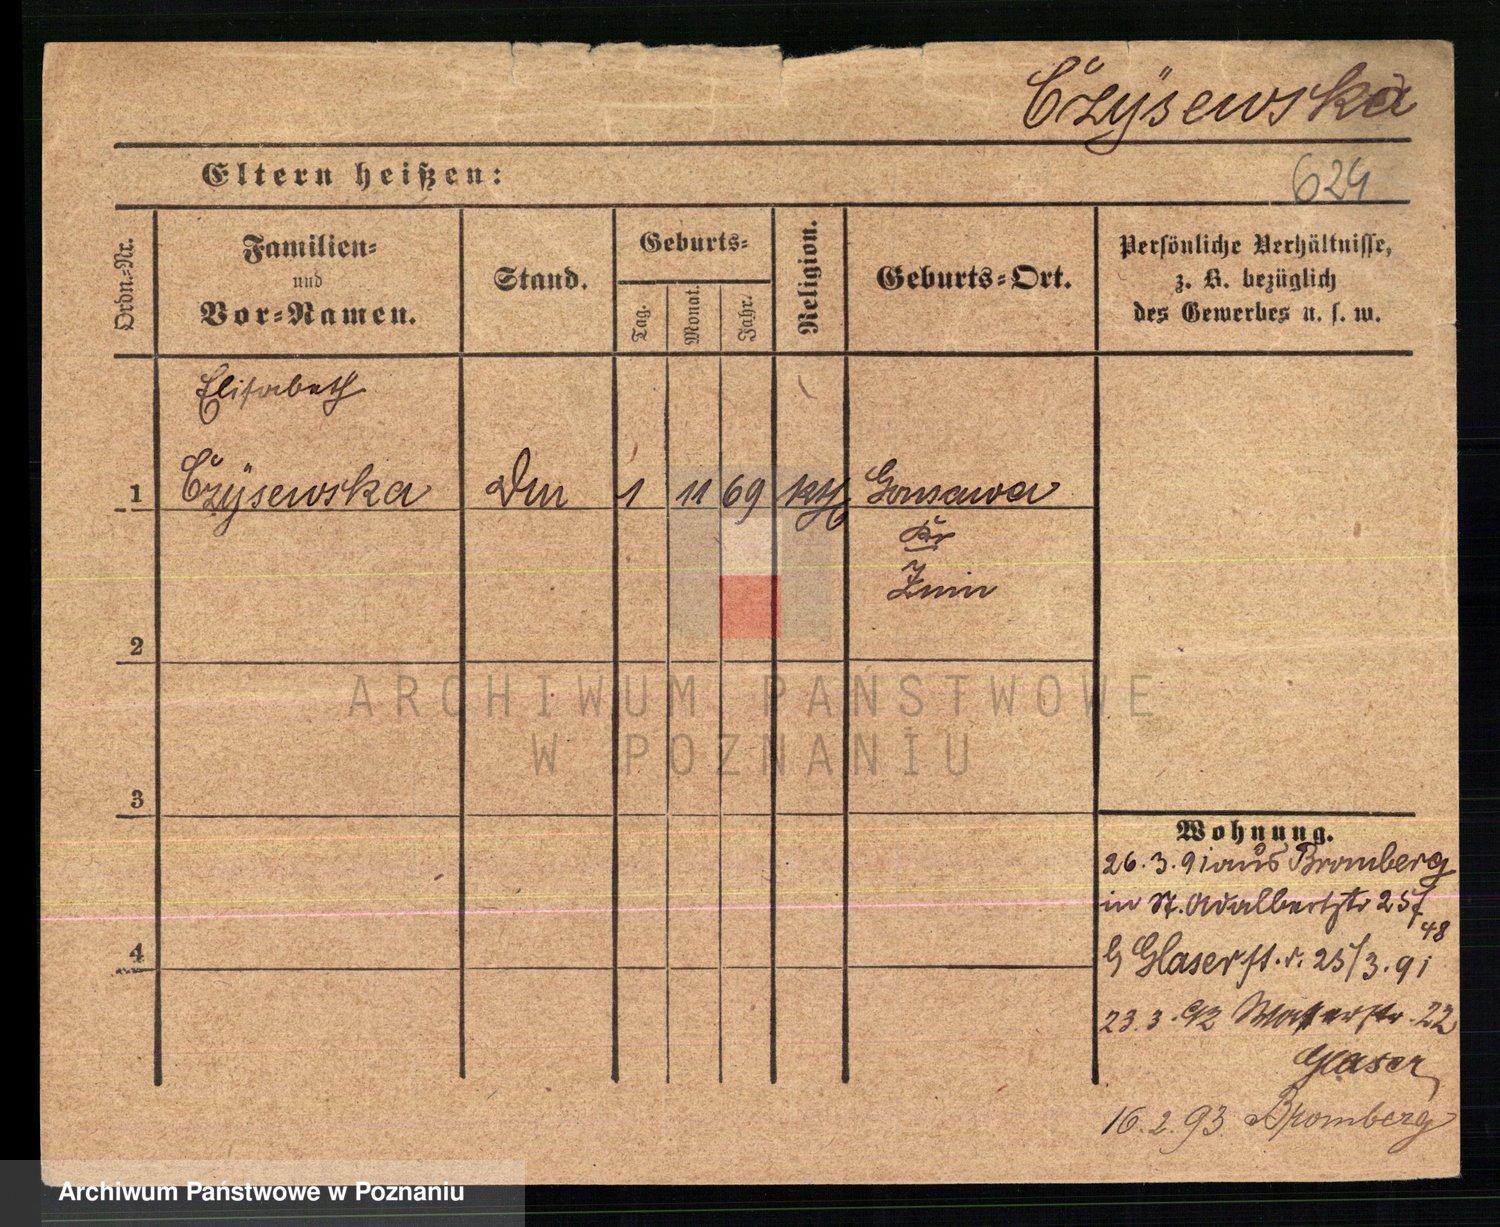 Czÿsewska
Eltern heißen:
624
Ordn.-Nr.
Familien-
und
Vor-Namen.
Stand.
Geburts-
Tag.
Monat.
Jahr.
Religion.
Geburts-Ort.
Persönliche Verhältnisse,
z. B. bezüglich
des Gewerbes u. s. w.
Elisabeth
1 Czÿsewska Dm 1 11 69 kth Gonsawa
Kr
Znin
2
3
4
ARCHIWUM PAŃSTWOWE
W POZNANIU
Wohnung.
26.3.91 aus Bromberg
in St. Adalbertstr 25/
48
b Glaser st. r. 25/3.91
23.3.92 Wasserstr. 22
Glaser
16.2.93 Bromberg
Archiwum Państwowe w Poznaniu